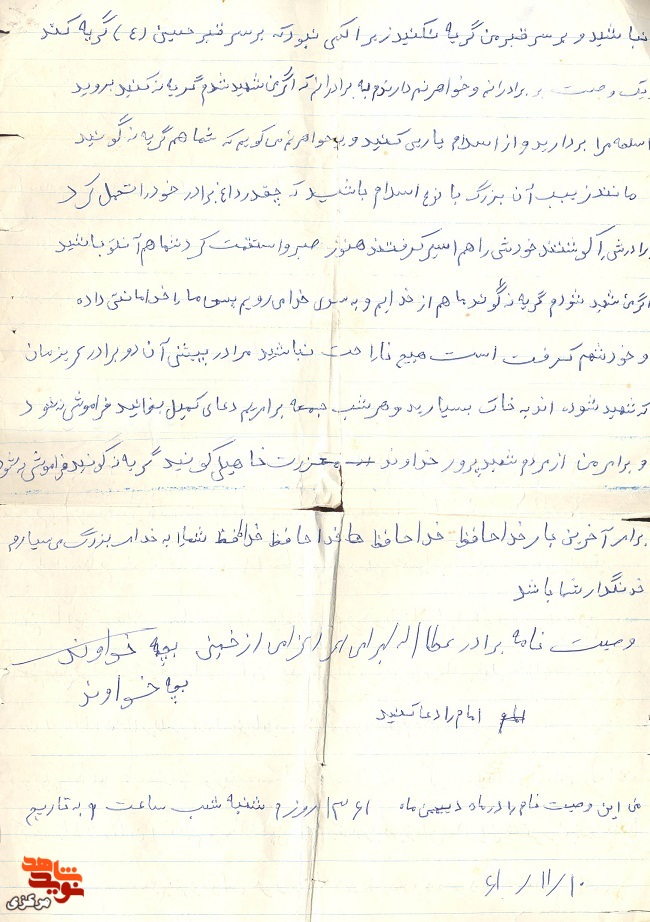 نباشید و بر سر قبر من گریه نکنید زیرا کسی نبود که بر سر قبر حسین (ع) گریه کند
یک وصیت بر برادرانم و خواهرنم دارم به برادرانم که اگر من شهید شدم گریه نه کنید بروید
اسلحه مرا بردارید و از اسلام یاری کنید و به خواهرنم می گویم که شما هم گریه نه گونید
مانند زینب آن بزرگ با نوع اسلام باشید که چقدر داغ برادر خود را تحمل کرد
برادرش را کوشتند خودش را هم اسیر گرفتند هنوز صبر و استقمت کرد شما هم آنطو باشید
اگر من شهید شودم گریه نه گوند ما هم از خدایم و به سوی خدا می رویم پس ما را خدا مانتی داده
و خودشهم گرفت است هیچ ناراحت نباشید مرا در پیشی آن دو برادر عزیزمان
که شهید شوده اند به خاک بسپارید و هر شب جمعه برایم دعای کمیل بخوانید فراموشی نه شود
و برای من از مردم شهید پرور خداوند معزرت خاهیلی کونید گریه نه گونید فراموشی نه شود
برای آخرین بار خداحافظ خداحافظ خداحافظ خداحافظ شما را به خدای بزرگ می سپارم
خدنگدار شما باشد
وصیت نامه برادر عطااله بچه خواوند
بچه خواوند
امام را دعا کنید
من این وصیت نامه را در ماه دیبهمن ماه ۱۳۶۱ روز و شنبه شب ساعت ۹ به تاریخ
۶۱/۱۱/۱۰
نوید شاهد
مرکزی